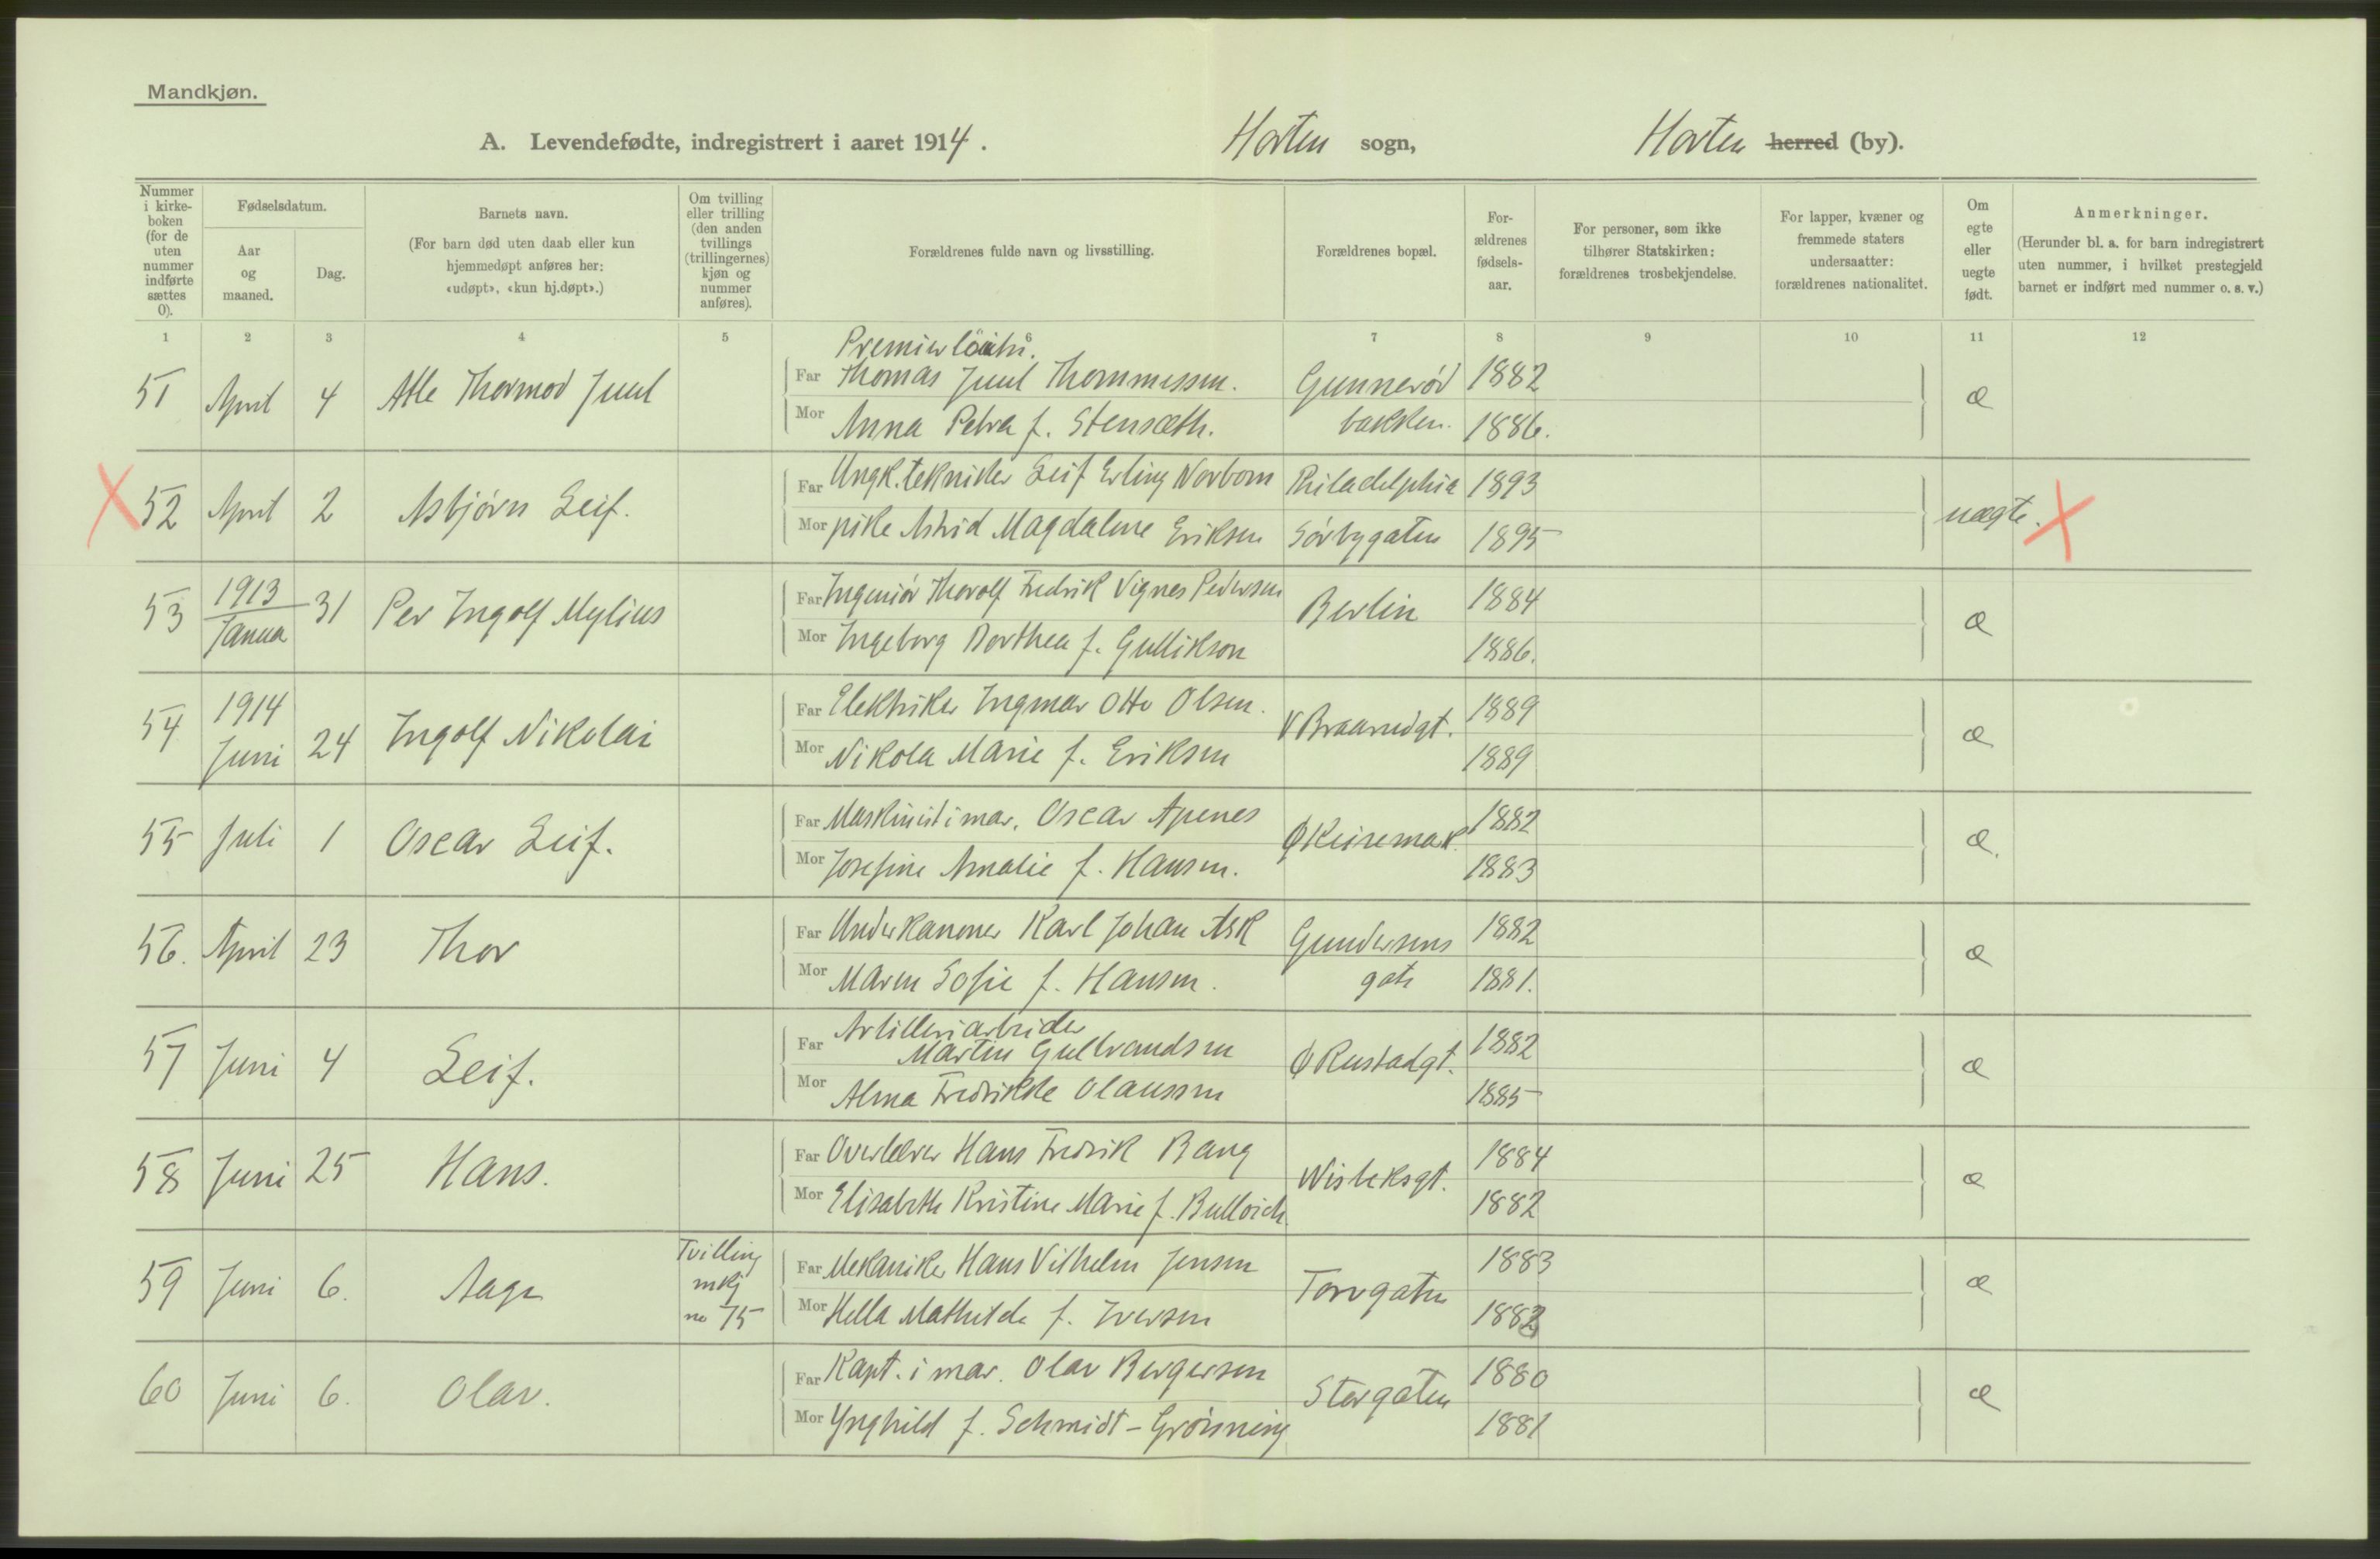 Mandkjøn.
A. Levendefødte, indregistrert i aaret 1914. Horten sogn, Horten herred (by).
Nummer i kirkeboken (for de uten nummer indførte sættes 0).
Fødselsdatum.
Aar og maaned.
Dag.
Barnets navn.
(For barn død uten daab eller kun hjemmedøpt anføres her: «udøpt», «kun hj.døpt».)
Om tvilling eller trilling (den anden tvillings (trillingernes) kjøn og nummer anføres).
Forældrenes fulde navn og livsstilling.
Forældrenes bopæl.
Forældrenes fødselsaar.
For personer, som ikke tilhører Statskirken: forældrenes trosbekjendelse.
For lapper, kvæner og fremmede staters undersaatter: forældrenes nationalitet.
Om egte eller uegte født.
Anmerkninger.
(Herunder bl. a. for barn indregistrert uten nummer, i hvilket prestegjeld barnet er indført med nummer o. s. v.)
1 2 3 4 5 6 7 8 9 10 11 12
51 April 4 Atle Thormod Juul
Far Thomas Juul Thommessen. Gunnerød 1882
Mor Anna Petra f. Stensæth. bakken. 1886. æ
52 April 2 Asbjørn Leif.
Far Ungk. tekniker Leif Erling Norbom Philadelphia 1893
Mor pike Astrid Magdalene Eriksen Sørbygaten 1895 uægte.
53 1913 Janua 31 Per Ingolf Mylius
Far Ingeniør Thorolf Fredrik Vignes Pedersen Berlin 1884
Mor Ingeborg Dorthea f. Gullikson 1886. æ
54 1914 Juni 24 Ingolf Nikolai
Far Elektriker Ingmar Otto Olsen. V Braarudgt. 1889
Mor Nikola Marie f. Eriksen 1889 æ
55 Juli 1 Oscar Leif.
Far Maskinist i mar. Oscar Apenes Ø Keisemark. 1882
Mor Josefine Amalie f. Hansen. 1883 æ.
56. April 23 Thor
Far Underkanoner Karl Johan Ask Gundersens 1882
Mor Maren Sofie f. Hansen. gate 1881. æ
57 Juni 4 Leif.
Far Artilleriarbeider
Martin Gulbrandsen Ø Rustadgt. 1882
Mor Alma Fredrikke Olaussen 1885 æ
58 Juni 25 Hans.
Far Overlærer Hans Fredrik Bang Wisbeksgt. 1884
Mor Elisabeth Kristine Marie f. 1882 æ
59 Juni 6. Aage Tvilling mkj no 75
Far Mekaniker Hans Vilhelm Jensen Torvgaten 1883
Mor Hella Mathilde f. Iversen 1882 æ
60 Juni 6. Olav.
Far Kapt. i mar. Olav Bergersen Storgaten 1880
Mor Ynghild f. Schmidt - Grønning 1881 æ